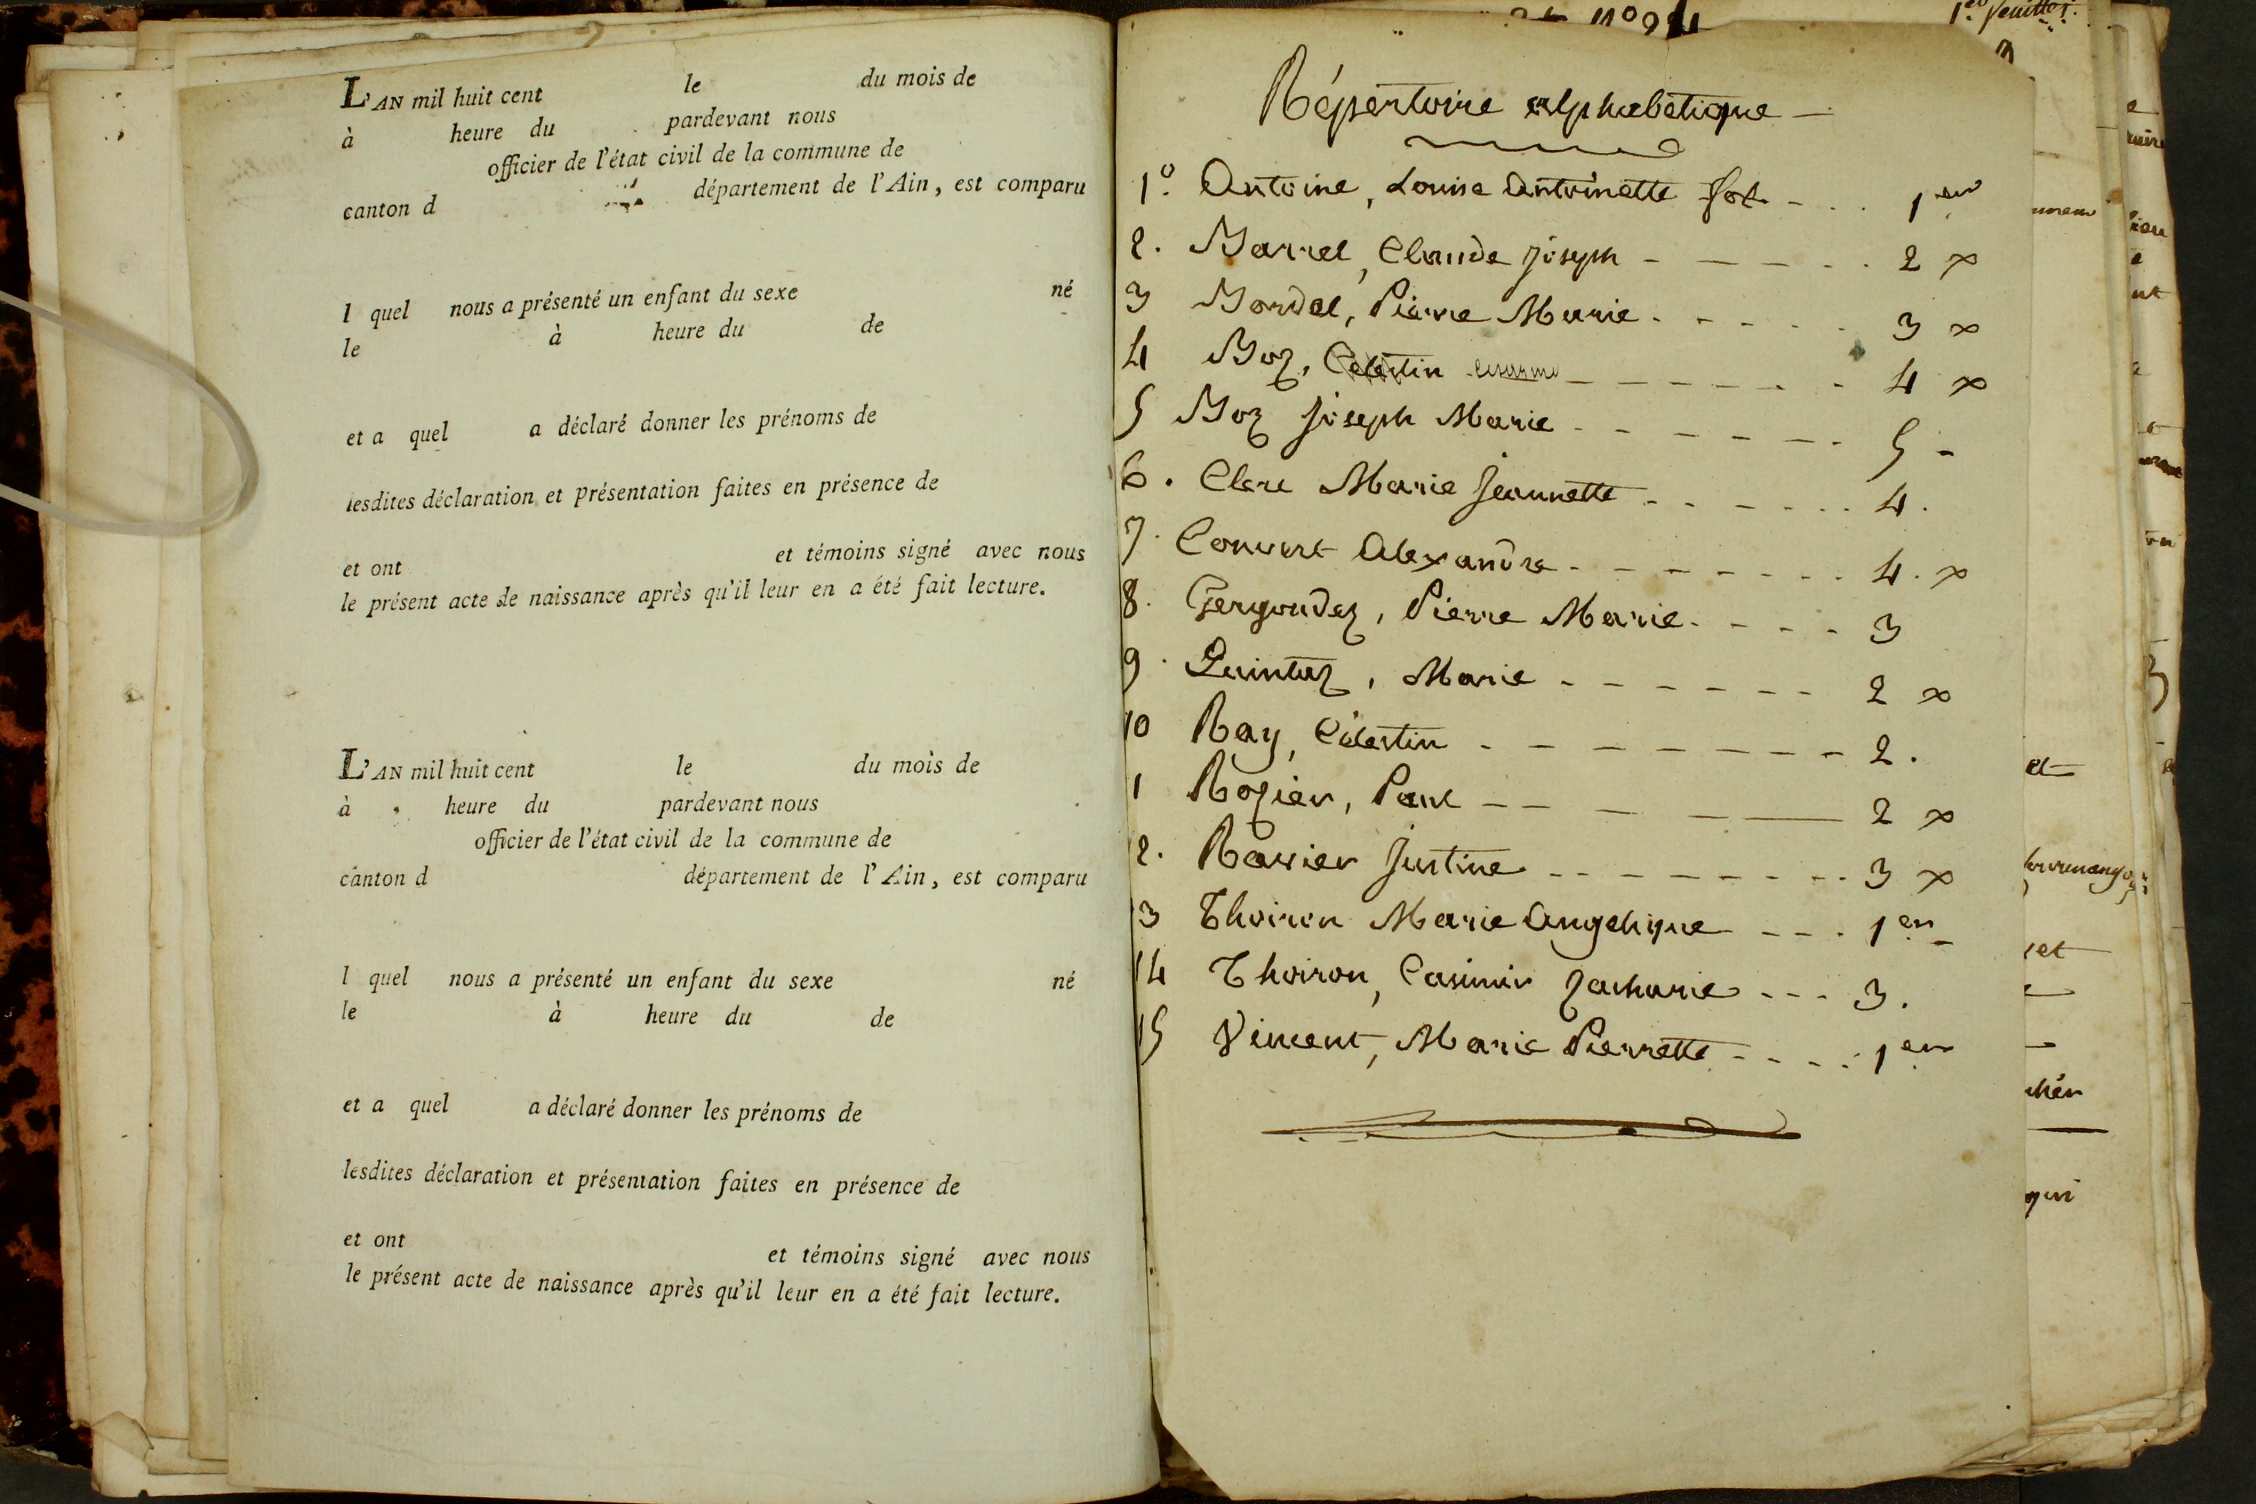 L'AN mil huit cent le du mois de
à heure du pardevant nous
officier de l'état civil de la commune de
canton d département de l'Ain, est comparu
l quel nous a présenté un enfant du sexe né
le à heure du de
et a quel a déclaré donner les prénoms de
lesdites déclaration et présentation faites en présence de
et ont et témoins signé avec nous
le présent acte de naissance après qu'il leur en a été fait lecture.
L'AN mil huit cent le du mois de
à heure du pardevant nous
officier de l'état civil de la commune de
canton d département de l'Ain, est comparu
l quel nous a présenté un enfant du sexe né
le à heure du de
et a quel a déclaré donner les prénoms de
lesdites déclaration et présentation faites en présence de
et ont et témoins signé avec nous
le présent acte de naissance après qu'il leur en a été fait lecture.
Répertoire alphabétique
1.º Antoine, Louise Antoinette fol - - . 1er
2. Barrel, Claude Joseph - - - - - . 2 x
3 Bordel, Pierre Marie - - - - - 3 x
4 Boz, Celestin - - - - - - - 4 x
5 Boz Joseph Marie - - - - - - 5 -
6. Clerc Marie Jeannette - - - - - 4.
7. Convert Alexandre - - - - - - - 4. x
8. Gergondez, Pierre Marie - - - - 3
9. Quintaz, Marie - - - - - - 2 x
10 Ray, Célestin - - - - - - - 2.
1 Rozier, Paul - - - - - 2 x
2. Ravier Justine - - - - - - - - 3 x
13 Thoiron Marie Angelique - - - 1er -
14 Thoiron, Casimir Zacharie - - - 3.
15 Vincent, Marie Pierrette - - - - 1er